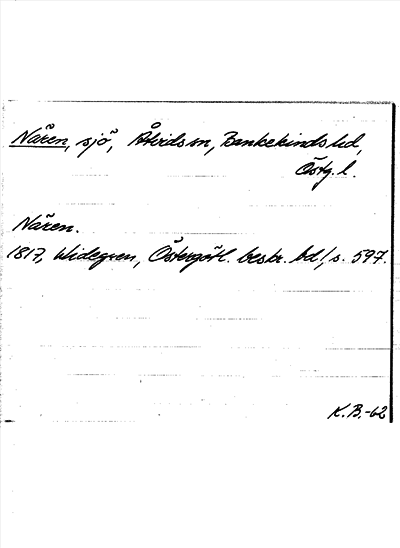 Nären, sjö, Åtvids sn, Bankekinds hd,
Östg. l.
Nären.
1817, Widegren, Östergötl. beskr. bd 1, s. 597.
K.B.-62